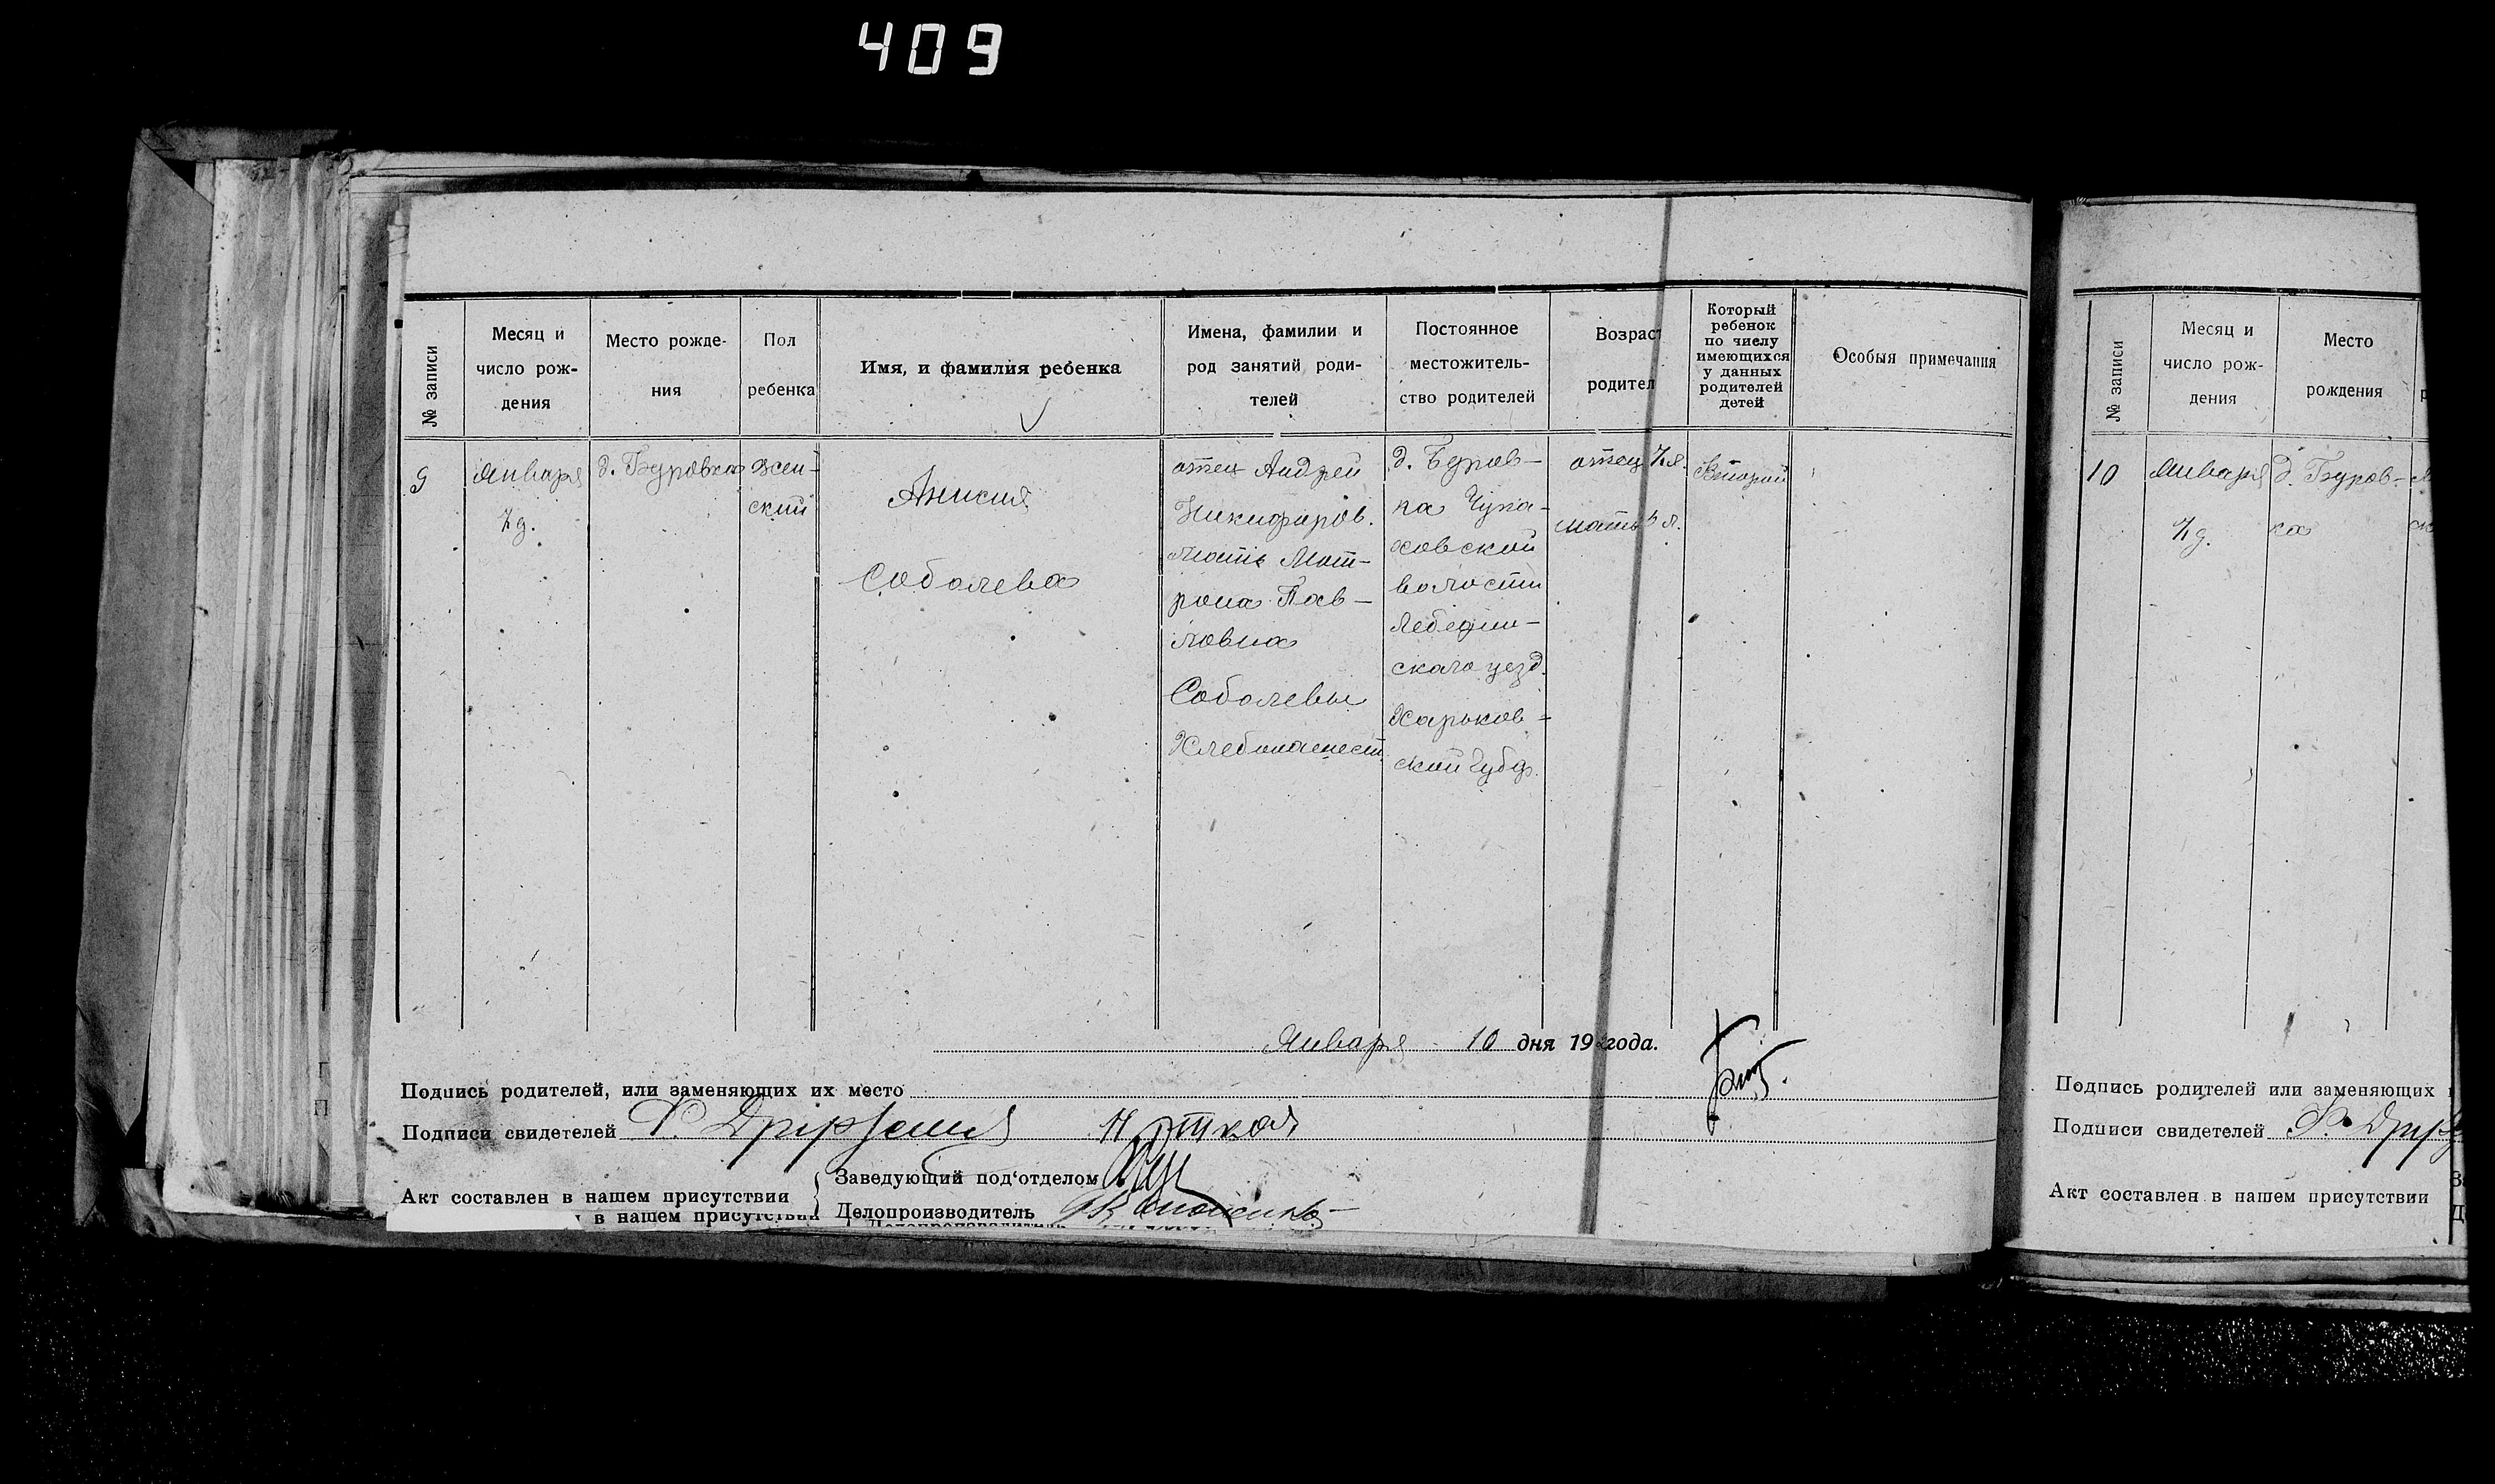 409
№ записи
Месяц и
число рож-
дения
Место рожде-
ния
Пол
ребенка
Имя, и фамилия ребенка
Имена, фамилии и
род занятий роди-
телей
Постоянное
местожитель-
ство родителей
Возраст
родител
Который
ребенок
по числу
имеющихся
у данных
родителей
детей
Особыя примечания
9
Января
7 д.
д. Буровка
жен-
ский
Анисия
Соболева
отец Андрей
Никифоров.
мать Мат-
рона Пав-
ловна
Соболевы
д. Буров-
ка Чупа-
ховской
волости
Лебедин-
скаго уезд.
Харьков-
ской губ.
отец
мать
Второй
Января 10 дня 19 года.
Подпись родителей, или заменяющих их место
Подписи свидетелей
Акт составлен в нашем присутствии
Заведующий под'отделом
Делопроизводитель
в нашем присутствии
Делопроизводитель
№ записи
Месяц и
число рож-
дения
Место
рождения
10
Января
7 д.
д. Буров-
ка
Подпись родителей или заменяющих
Подписи свидетелей
Акт составлен в нашем присутствии